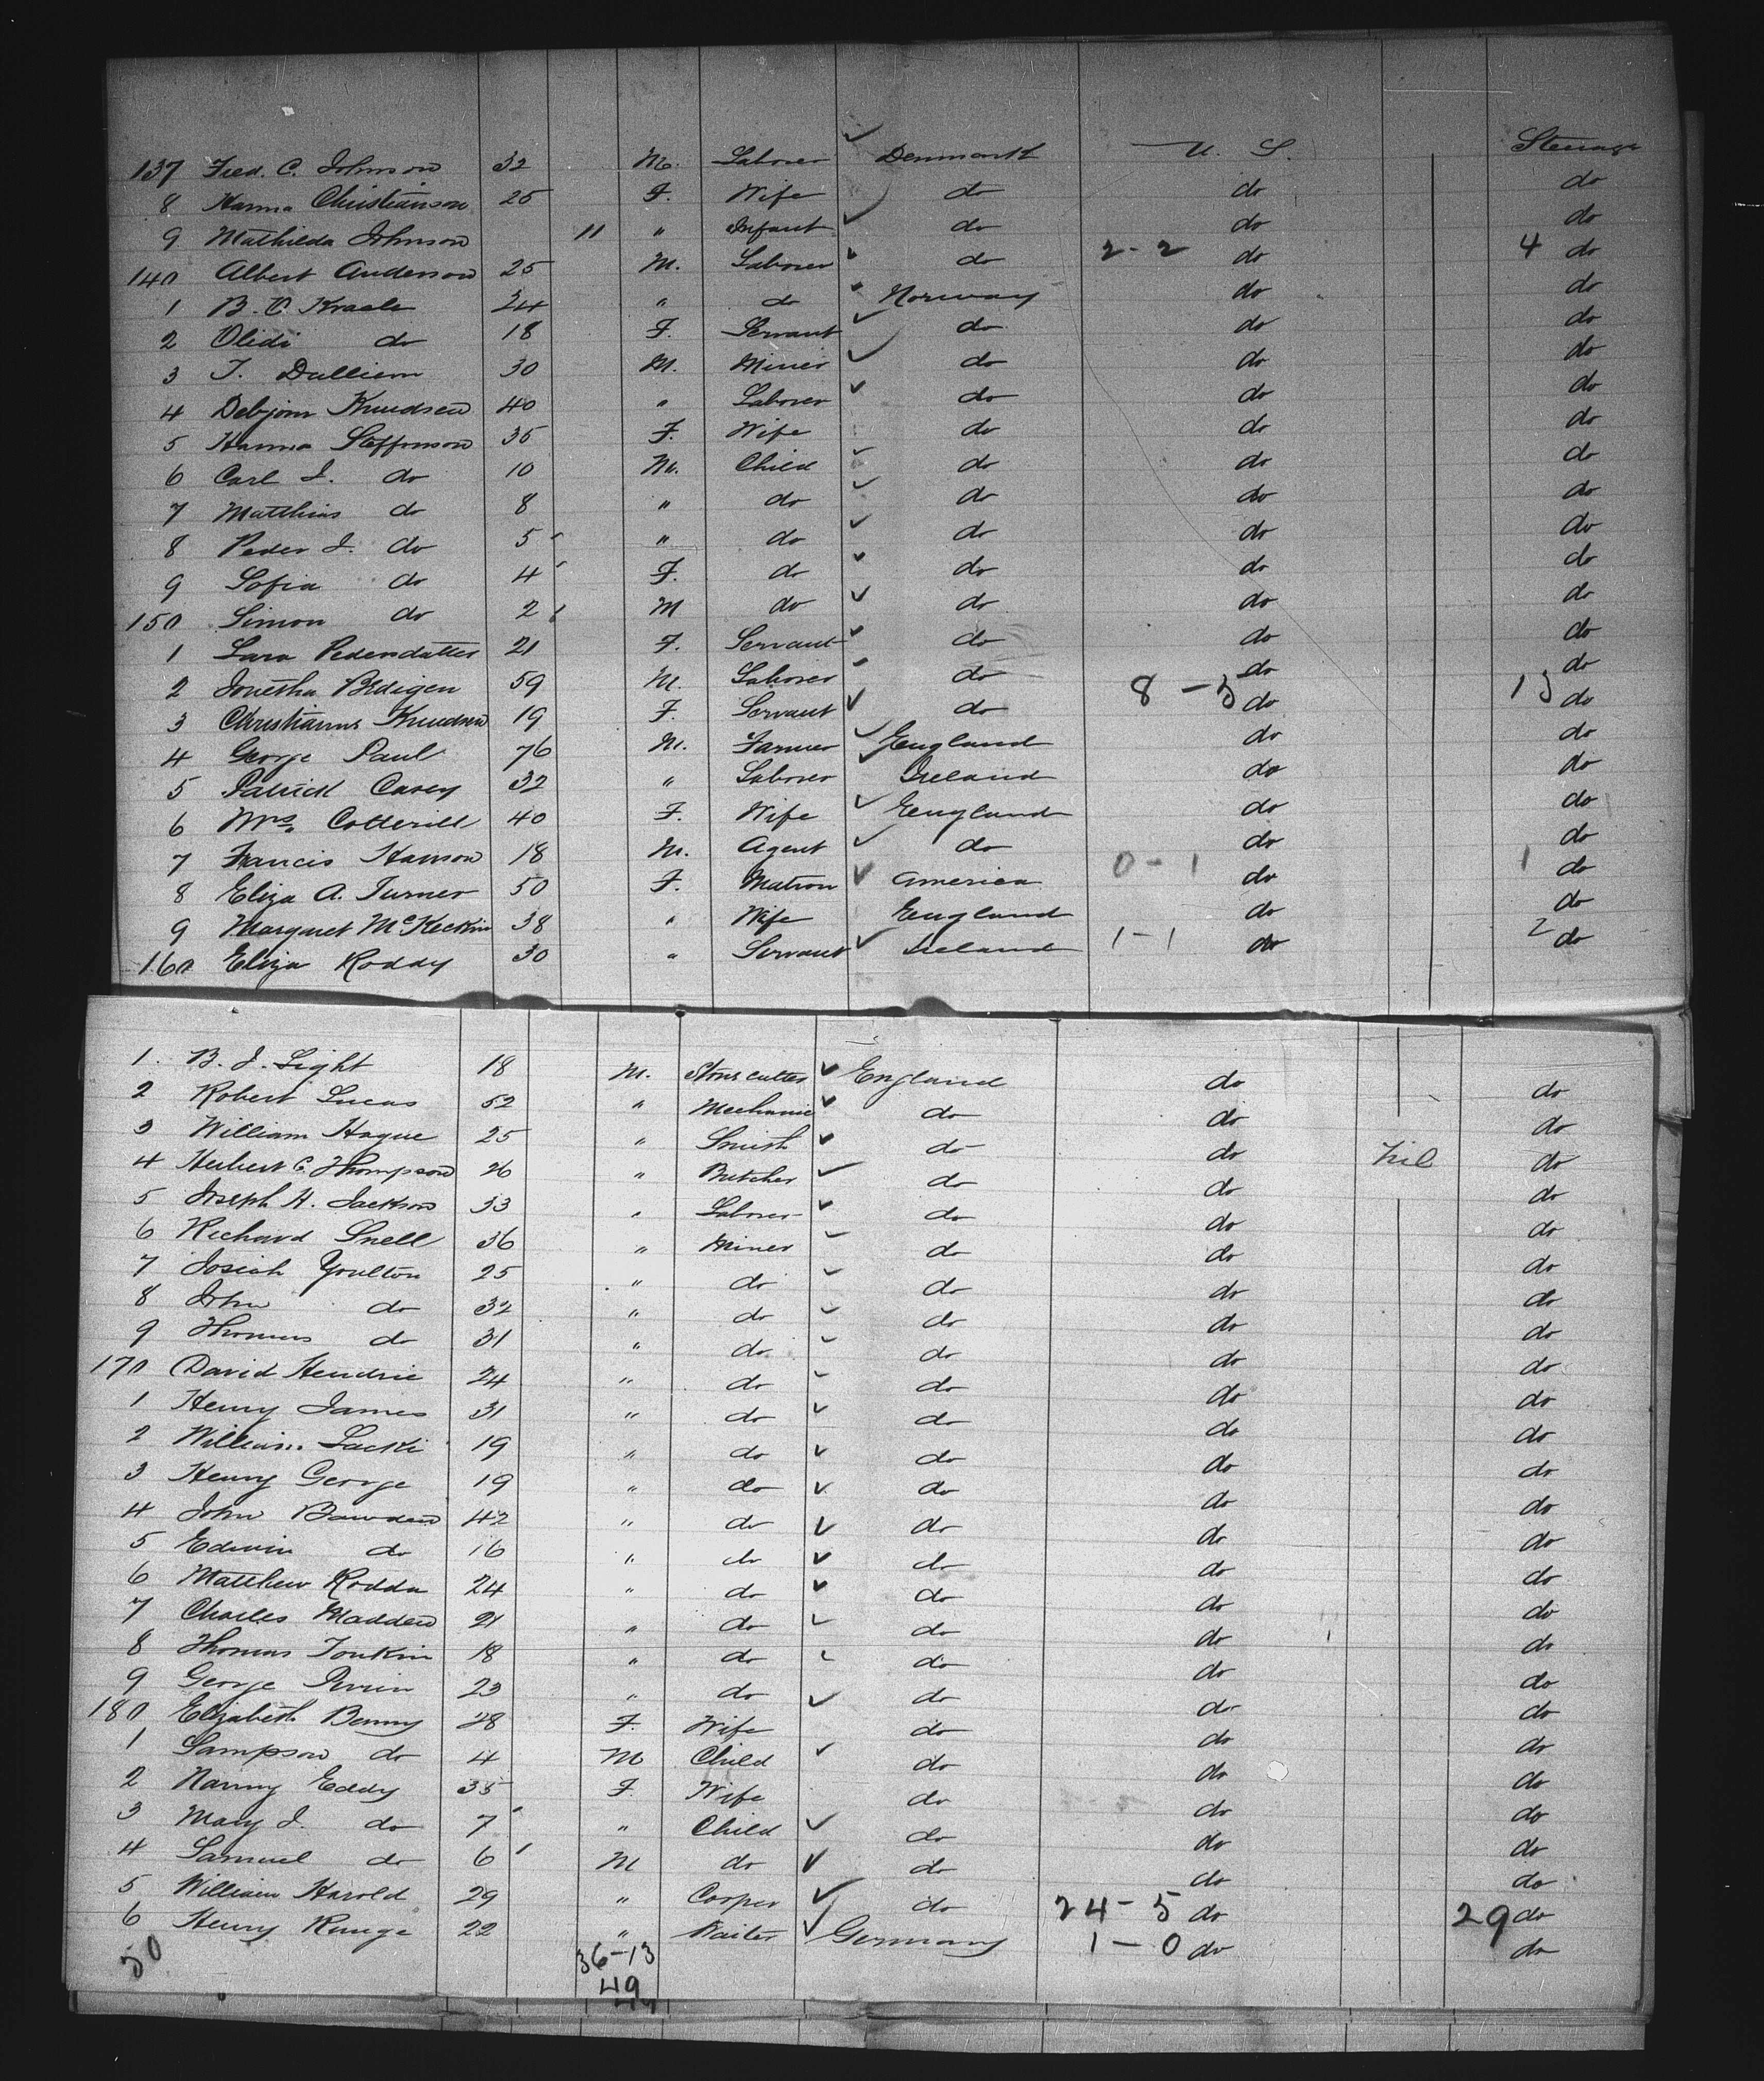 137 Fred. C. Johnson 32 M. Laborer Denmark U. S. Steerage
8 Hanna Christianson 25 F. Wife do do do
9 Mathilda Johnson 11 " Infant do do do
140 Albert Anderson 25 M. Laborer do 2-2 do 4 do
1 B. C. 24 " do Norway do do
2 Olidi do 18 F. Servant do do do
3 T. 30 M. Miner do do do
4 Knudsen 40 " Laborer do do do
5 Hanna Steffonson 35 F. Wife do do do
6 Carl J. do 10 M. Child do do do
7 Matthias do 8 " do do do do
8 Peder J. do 5 " do do do do
9 Sofia do 4 F. do do do do
150 Simon do 2 M do do do do
1 Lara Pedersdatter 21 F. Servant do do do
2 59 M. Laborer do do do
3 Knudsen 19 F. Servant do 8-5 do 13 do
4 George Paul 76 M. Farmer England do do
5 Patrick Casey 32 " Laborer Ireland do do
6 Mrs. Cotterill 40 F. Wife England do do
7 Francis Hanson 18 M. Agent do do do
8 Eliza A. Turner 50 F. Matron America 0-1 do 1 do
9 Margaret 38 " Wife England do do
160 Eliza Roddy 30 " Servant Ireland 1-1 do 2 do
1. B. J. Light 18 M. Stone cutter England do do
2 Robert Lucas 52 " Mechanic do do do
3 William Hague 25 " Smith do do Nil do
4 Herbert C. Thompson 26 " Butcher do do do
5 Joseph H. Jackson 33 " Laborer do do do
6 Richard Snell 36 " Miner do do do
7 Josiah Youlton 25 " do do do do
8 John do 32 " do do do do
9 Thomas do 31 " do do do do
170 David Hendrie 24 " do do do do
1 Henry James 31 " do do do do
2 William 19 " do do do do
3 Henry George 19 " do do do do
4 John Bawden 42 " do do do do
5 Edwin do 16 " do do do do
6 Matthew Rodda 24 " do do do do
7 Charles Madden 21 " do do do do
8 Thomas Tonkin 18 " do do do do
9 George 23 " do do do do
180 Elizabeth Benny 28 F. Wife do do do
1 Sampson do 4 M Child do do do
2 Nanny Eddy 35 F. Wife do do do
3 Mary J. do 7 " Child do do do
4 Samuel do 6 M do do do do
5 William Harold 29 " Cooper do 24-5 do 29 do
6 Henry Runge 22 " Waiter Germany 1-0 do do
50 36-13
49